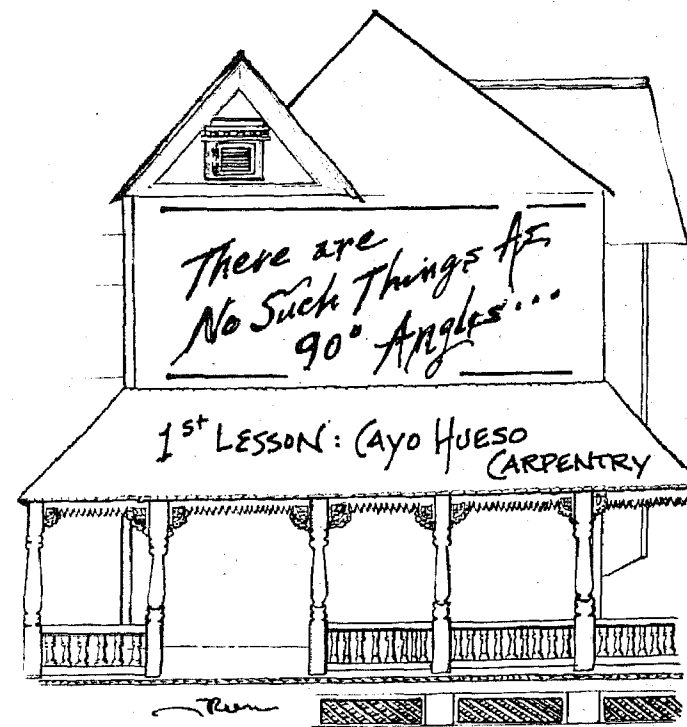 There are
No Such Things As
90° Angles...
1st LESSON: CAYO HUESO
CARPENTRY